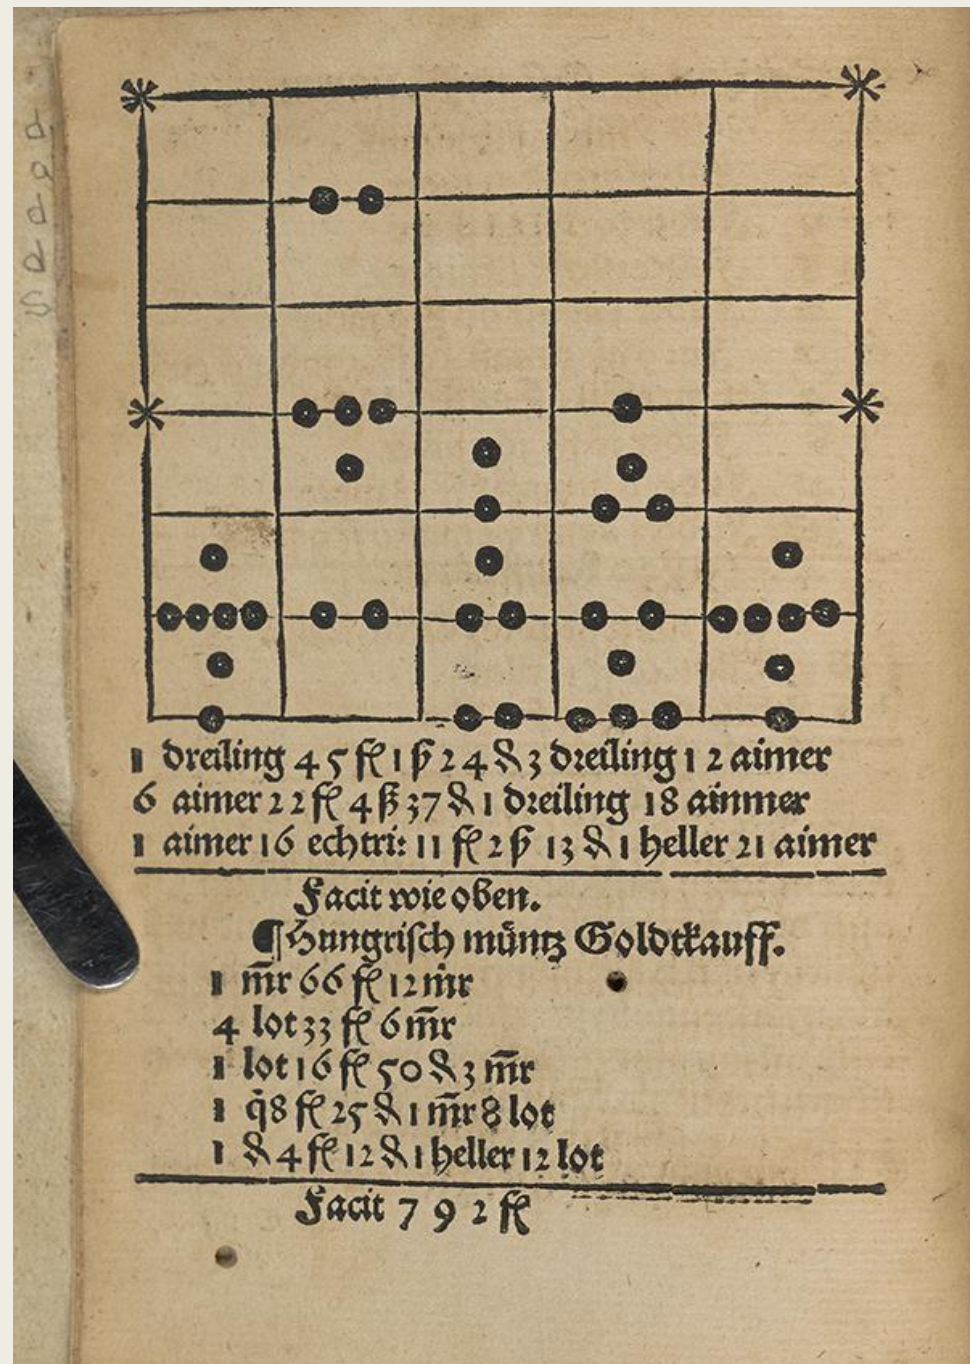 1 dreiling 45 fl 1 ß 24 ₰ 3 dreiling 12 aimer
6 aimer 22 fl 4 ß 37 ₰ 1 dreiling 18 ainmer
1 aimer 16 echtri: 11 fl 2 ß 13 ₰ 1 heller 21 aimer
Facit wie oben.
¶ Hungrisch müntz Goldtkauff.
1 m̄r 66 fl 12 m̄r
4 lot 33 fl 6 m̄r
1 lot 16 fl 50 ₰ 3 m̄r
1 q̄ 8 fl 25 ₰ 1 m̄r 8 lot
1 ₰ 4 fl 12 ₰ 1 heller 12 lot
Facit 7 9 2 fl